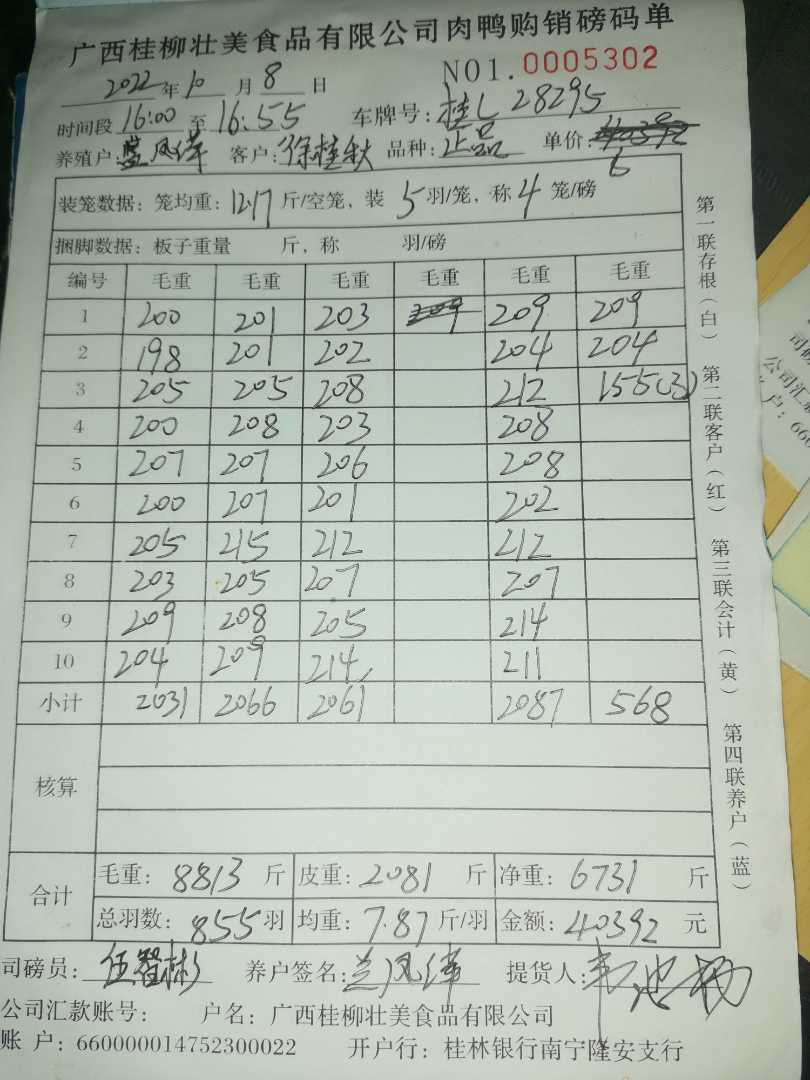 广西桂柳壮美食品有限公司肉鸭购销磅码单
NO1. 0005302
2022年10月8日
时间段 16:00 至 16:55 车牌号: 桂L 28295
养殖户: 蓝凤萍 客户: 徐桂秋 品种: 正品 单价: 6
装笼数据: 笼均重: 12.17 斤/空笼, 装 5 羽/笼, 称 4 笼/磅
捆脚数据: 板子重量 斤, 称 羽/磅
编号 毛重 毛重 毛重 毛重 毛重 毛重
1 200 201 203 209 209
2 198 201 202 204 204
3 205 205 208 212 155(3)
4 200 208 203 208
5 207 207 206 208
6 200 207 201 202
7 205 215 212 212
8 203 205 207 207
9 209 208 205 214
10 204 209 214 211
小计 2031 2066 2061 2087 568
核算
合计
毛重: 8813 斤 皮重: 2081 斤 净重: 6731 斤
总羽数: 855 羽 均重: 7.87 斤/羽 金额: 40392 元
司磅员: 伍智彬 养户签名: 兰凤萍 提货人:
公司汇款账号: 户名: 广西桂柳壮美食品有限公司
账户: 660000014752300022 开户行: 桂林银行南宁隆安支行
第一联存根(白) 第二联客户(红) 第三联会计(黄) 第四联养户(蓝)
司磅
公司汇款
户: 660